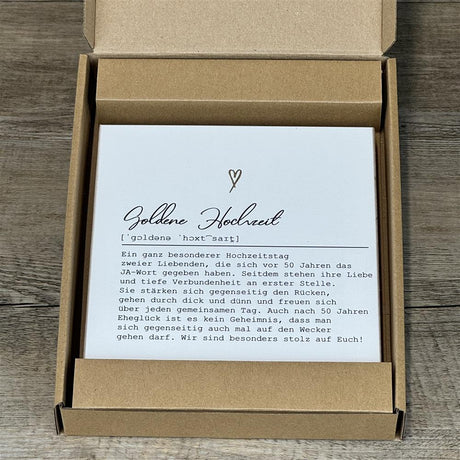 Goldene Hochzeit
[ˈɡɔldənə ˈhɔxt͡saɪt]
Ein ganz besonderer Hochzeitstag
zweier Liebenden, die sich vor 50 Jahren das
JA-Wort gegeben haben. Seitdem stehen ihre Liebe
und tiefe Verbundenheit an erster Stelle.
Sie stärken sich gegenseitig den Rücken,
gehen durch dick und dünn und freuen sich
über jeden gemeinsamen Tag. Auch nach 50 Jahren
Eheglück ist es kein Geheimnis, dass man
sich gegenseitig auch mal auf den Wecker
gehen darf. Wir sind besonders stolz auf Euch!